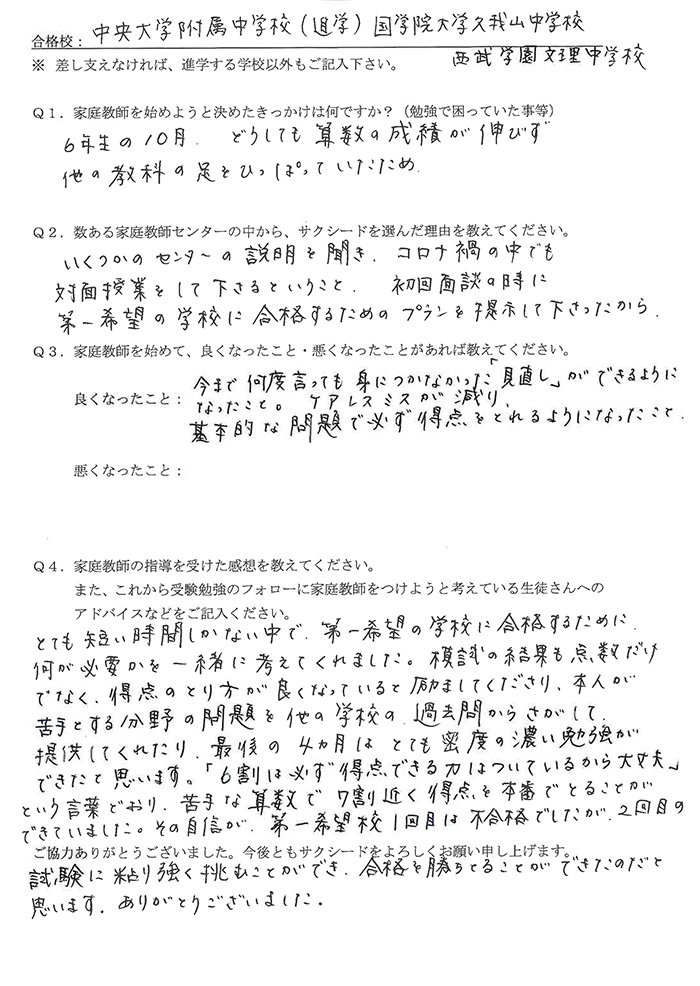 合格校：中央大学附属中学校（進学）国学院大学久我山中学校
※ 差し支えなければ、進学する学校以外もご記入下さい。 西武学園文理中学校
Ｑ１．家庭教師を始めようと決めたきっかけは何ですか？（勉強で困っていた事等）
6年生の10月、どうしても算数の成績が伸びず
他の教科の足をひっぱっていたため。
Ｑ２．数ある家庭教師センターの中から、サクシードを選んだ理由を教えてください。
いくつかのセンターの説明を聞き、コロナ禍の中でも
対面授業をして下さるということ、初回面談の時に
第一希望の学校に合格するためのプランを提示して下さったから。
Ｑ３．家庭教師を始めて、良くなったこと・悪くなったことがあれば教えてください。
今まで何度言っても身につかなかった「見直し」ができるように
良くなったこと： なったこと。ケアレスミスが減り、
基本的な問題で必ず得点をとれるようになったこと。
悪くなったこと：
Ｑ４．家庭教師の指導を受けた感想を教えてください。
また、これから受験勉強のフォローに家庭教師をつけようと考えている生徒さんへの
アドバイスなどをご記入ください。
とても短い時間しかない中で、第一希望の学校に合格するために、
何が必要かを一緒に考えてくれました。模試の結果も点数だけ
でなく、得点のとり方が良くなっていると励ましてくださり、本人が
苦手とする分野の問題を他の学校の過去問からさがして、
提供してくれたり、最後の4ヵ月はとても密度の濃い勉強が
できたと思います。「6割は必ず得点できる力はついているから大丈夫」
という言葉どおり、苦手な算数で7割近く得点を本番でとることが
できていました。その自信が、第一希望校1回目は不合格でしたが、2回目の
ご協力ありがとうございました。今後ともサクシードをよろしくお願い申し上げます。
試験に粘り強く挑むことができ、合格を勝ちとることができたのだと
思います。ありがとうございました。